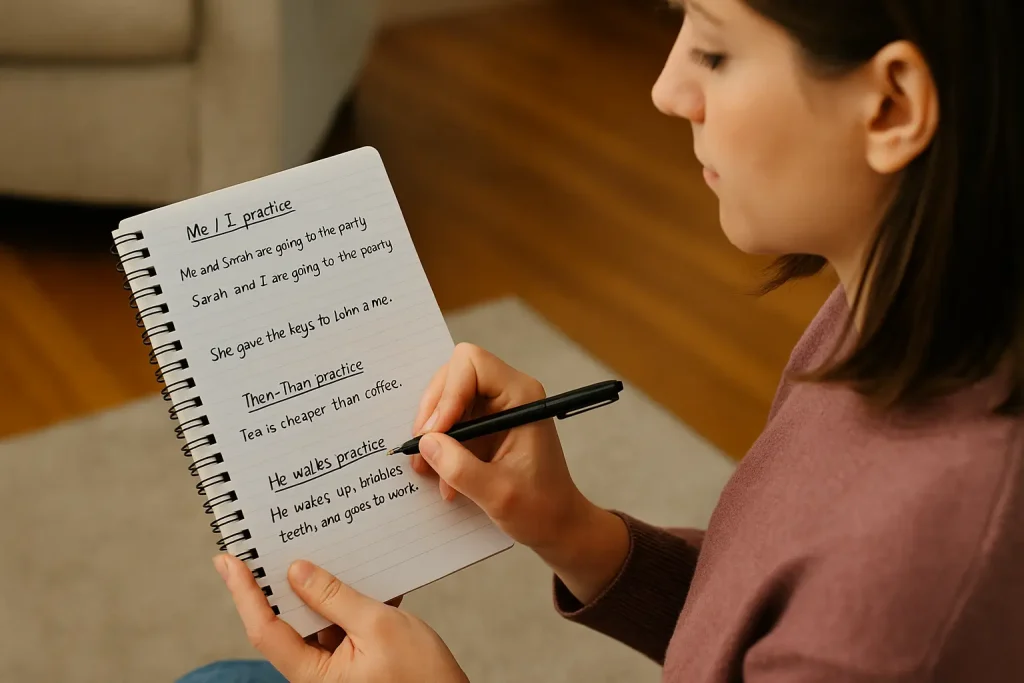 Me / I practice
Me and Srrah are going to the party
Sarah and I are going to the poarty
She gave the keys to Lohn a me.
Then-Than practice
Tea is cheaper than coffee.
He walks practice
He wakes up, briables
teeth, and goes to work.